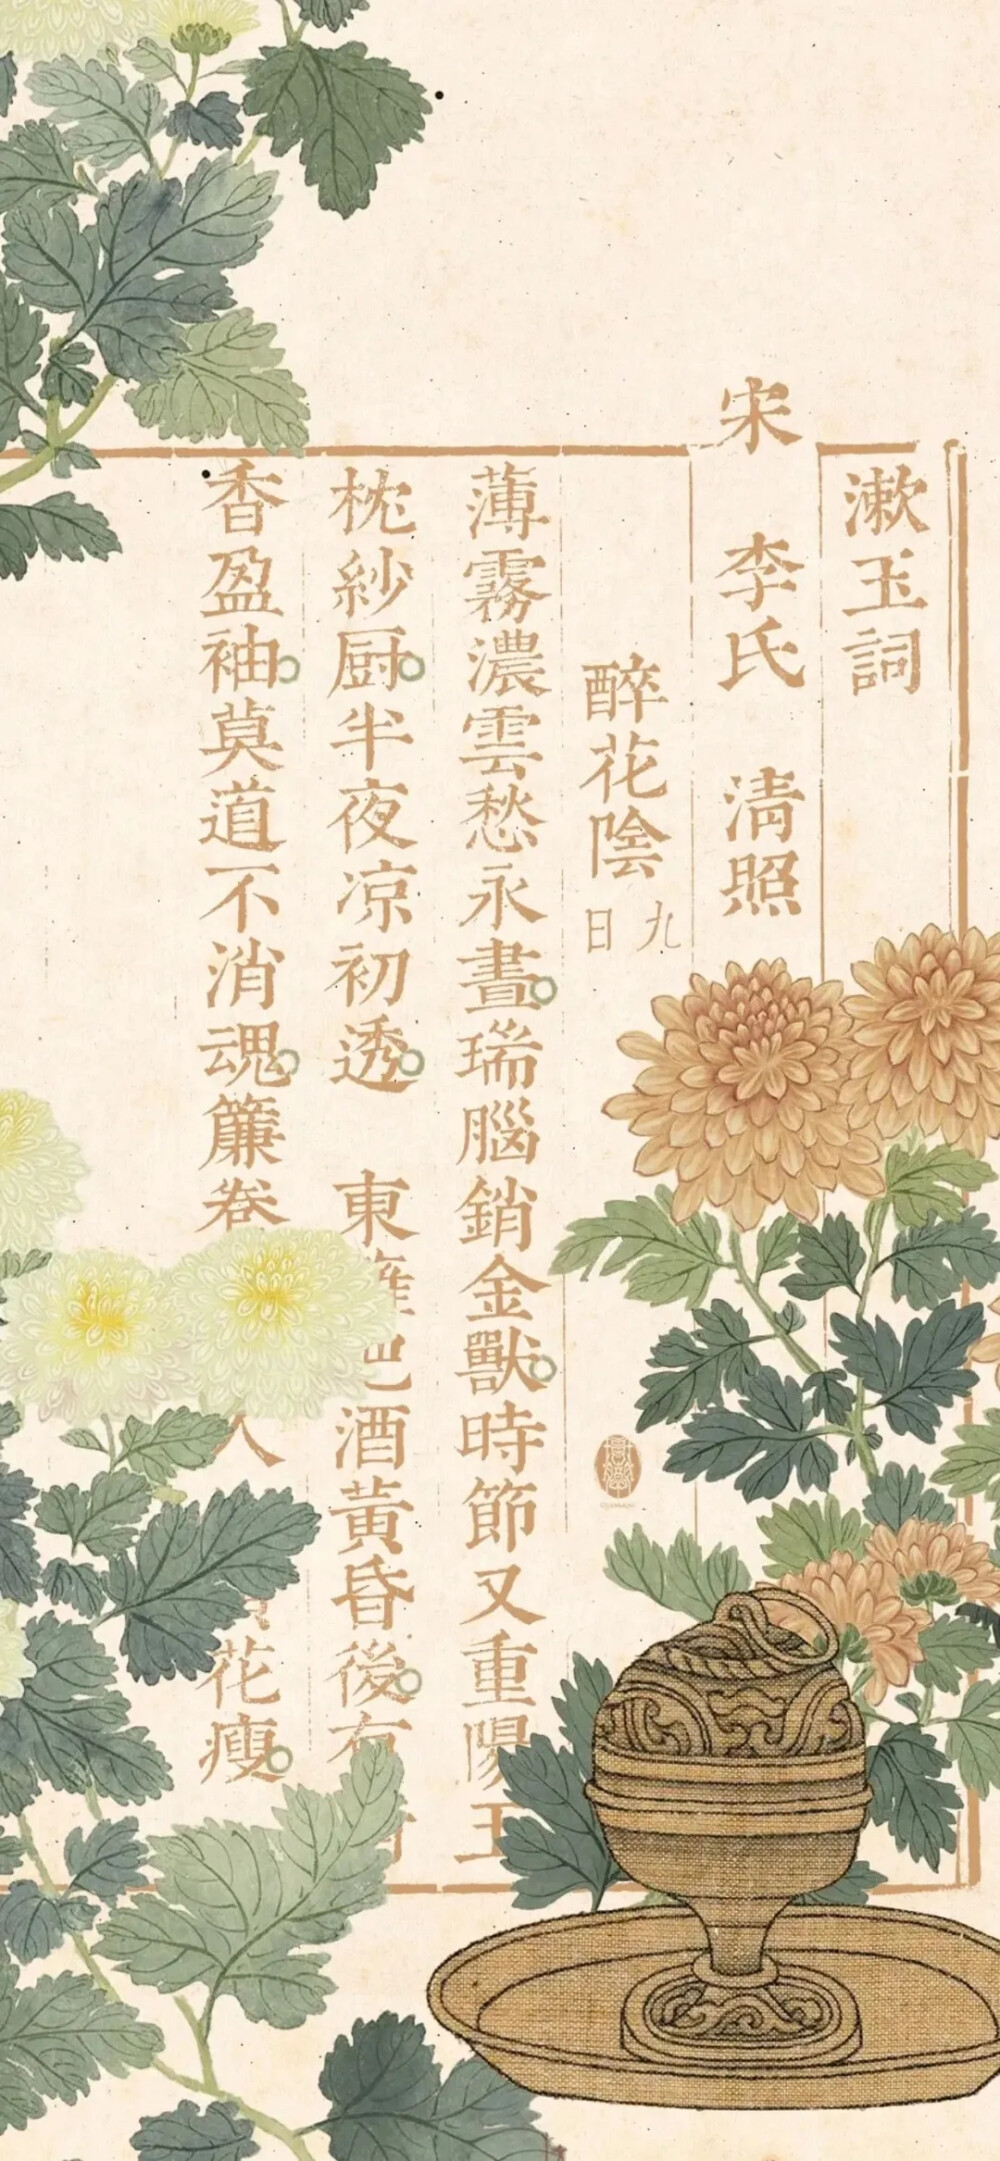 漱玉詞
宋 李氏 清照
醉花陰 九日
薄霧濃雲愁永晝瑞腦銷金獸時節又重陽玉
枕紗厨半夜凉初透 東籬把酒黃昏後有
香盈袖莫道不消魂簾卷人花瘦